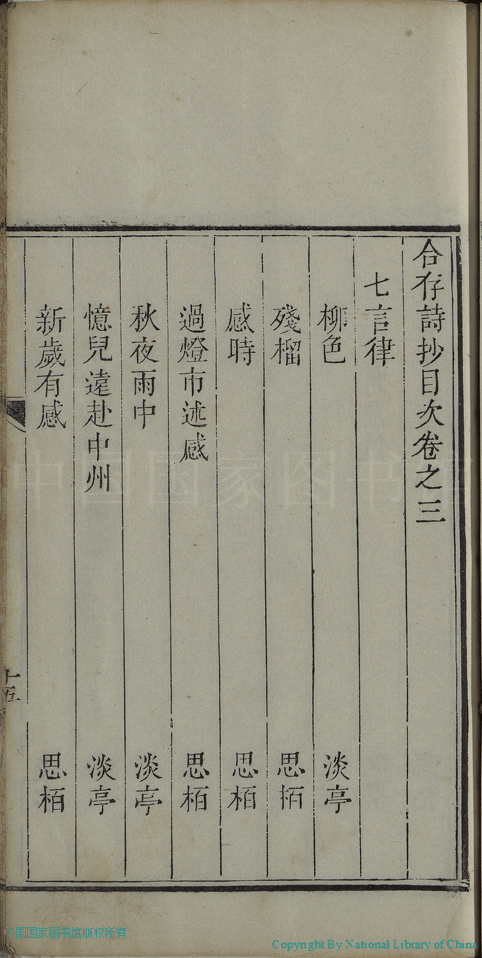 合存詩抄目次卷之三
七言律
柳色 淡亭
殘榴 思栢
感時 思栢
過燈市述感 思栢
秋夜雨中 淡亭
憶兒遠赴中州 淡亭
新歲有感 思栢
十五
中国国家图书馆
中国国家图书馆版权所有
Copyright By National Library of China